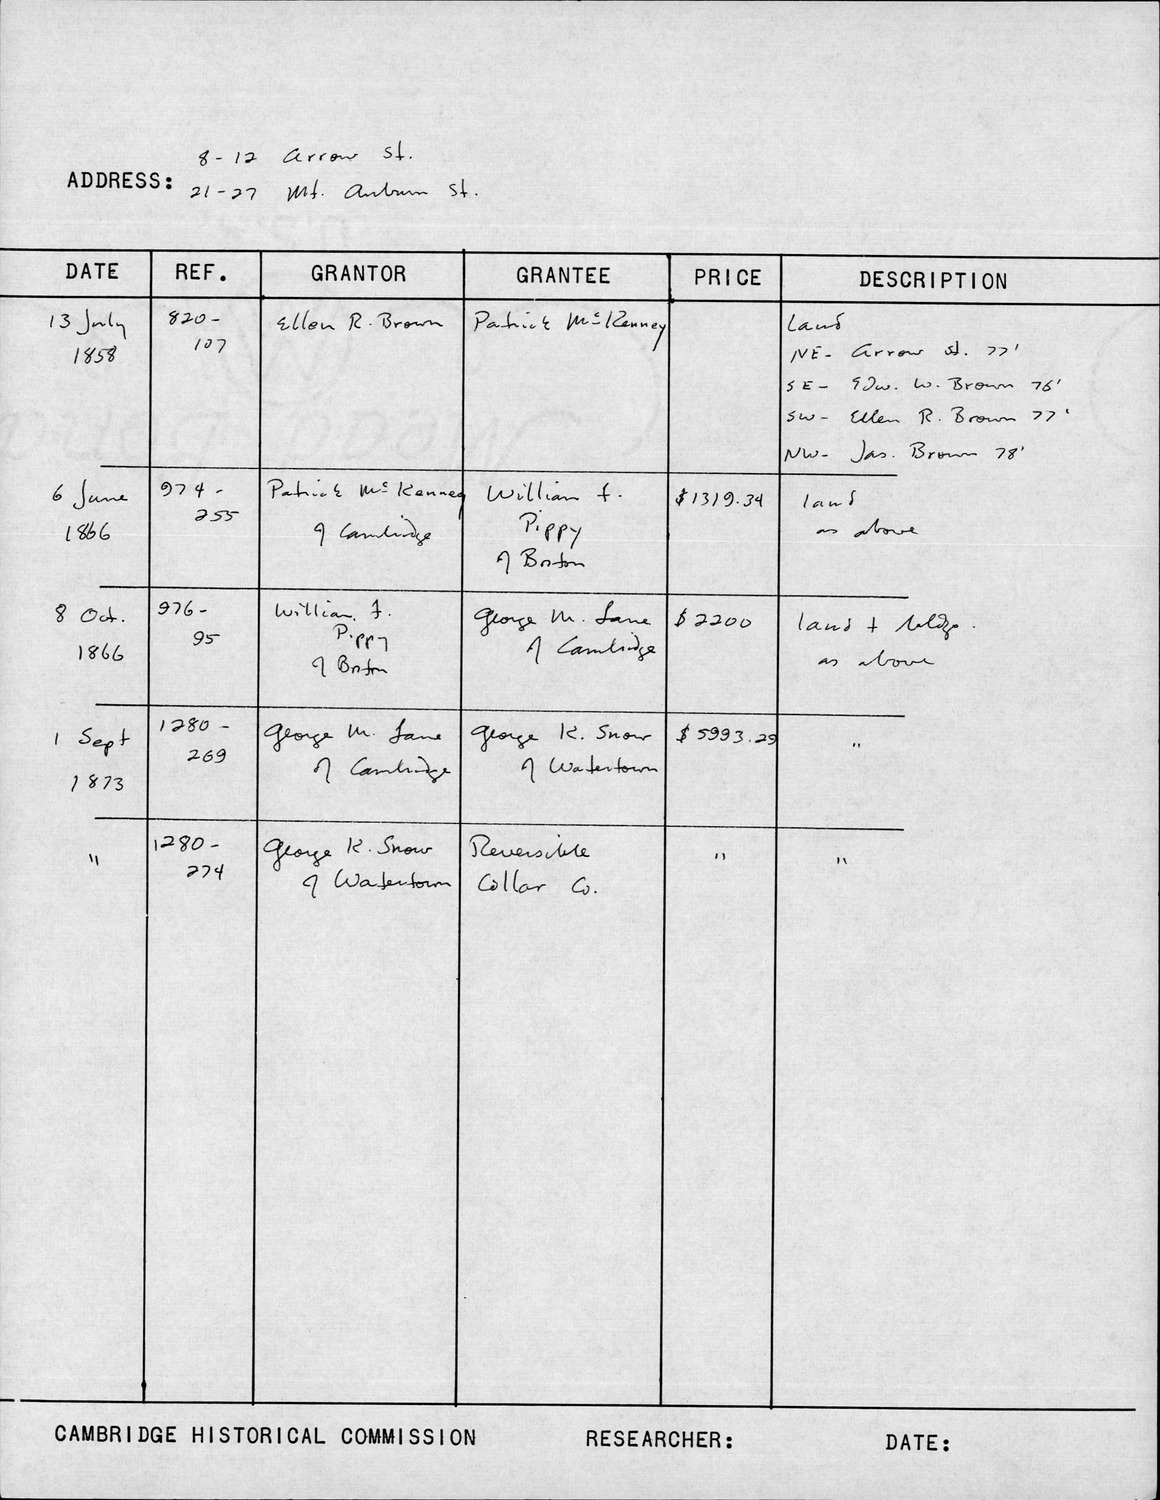 8-12 Arrow St.
ADDRESS: 21-27 Mt. Auburn St.
DATE REF. GRANTOR GRANTEE PRICE DESCRIPTION
13 July 820- Ellen R. Brown Patrick McKenney Land
1858 107 NE- Arrow St. 77'
SE- Edw. W. Brown 76'
SW- Ellen R. Brown 77'
NW- Jas. Brown 78'
6 June 974- Patrick McKenney William F. $1319.34 land
1866 255 of Cambridge Pippy as above
of Boston
8 Oct. 976- William F. George M. Lane $2200 land + bldgs.
1866 95 Pippy of Cambridge as above
of Boston
1 Sept 1280- George M. Lane George K. Snow $5993.29 "
1873 269 of Cambridge of Watertown
" 1280- George K. Snow Reversible " "
274 of Watertown Collar Co.
CAMBRIDGE HISTORICAL COMMISSION RESEARCHER: DATE: